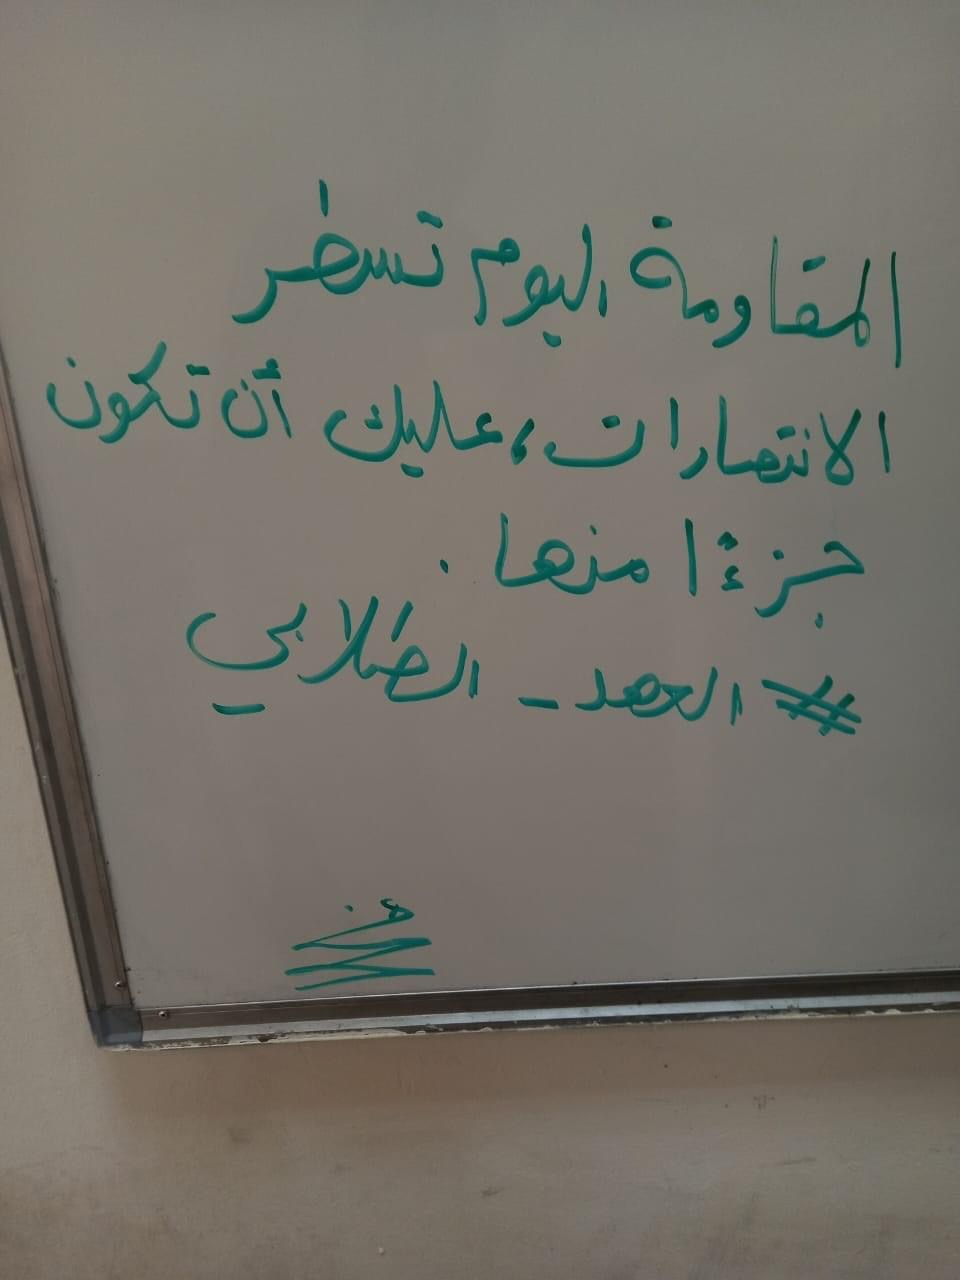 المقاومة اليوم تسطر
الانتصارات، عليك أن تكون
جزءًا منها.
# العهد - الطلابي